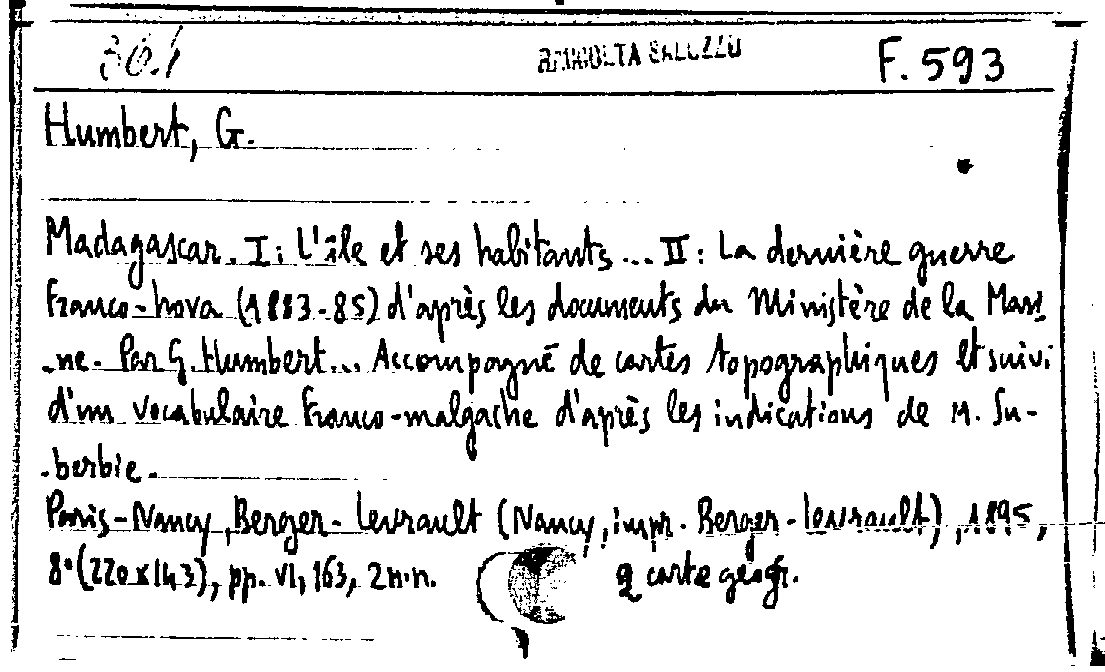 30.1 RACCOLTA SALUZZO F. 593
Humbert, G.
Madagascar. I: L'île et ses habitants... II: La dernière guerre
Franco-hova (1883-85) d'après les documents du Ministère de la Mari
-ne. Par G. Humbert... Accompagné de cartes topographiques et suivi
d'un vocabulaire franco-malgache d'après les indications de M. Su-
-berbie.
Paris-Nancy, Berger-Levrault (Nancy, impr. Berger-Levrault), 1895,
8° (220x143), pp. VI, 163, 2 n.n. 2 carte geogr.